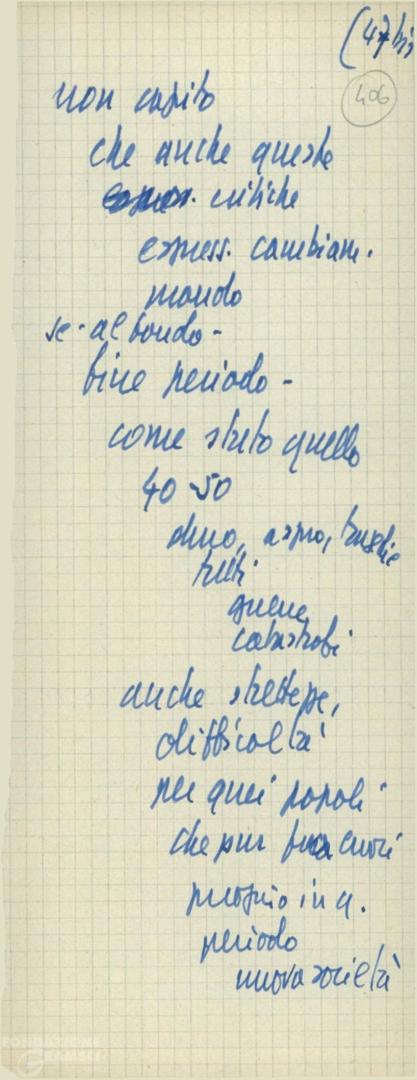 (47 bis
406
non capito
che anche queste
critiche
express. cambiam.
mondo
se. al fondo -
fine periodo -
come stato quello
40 - 50
duro, aspro,
tutti
guerre
catastrofi
anche strettezze,
difficoltà
per quei popoli
che pur
proprio in q.
periodo
nuova società
FONDAZIONE
GRAMSCI